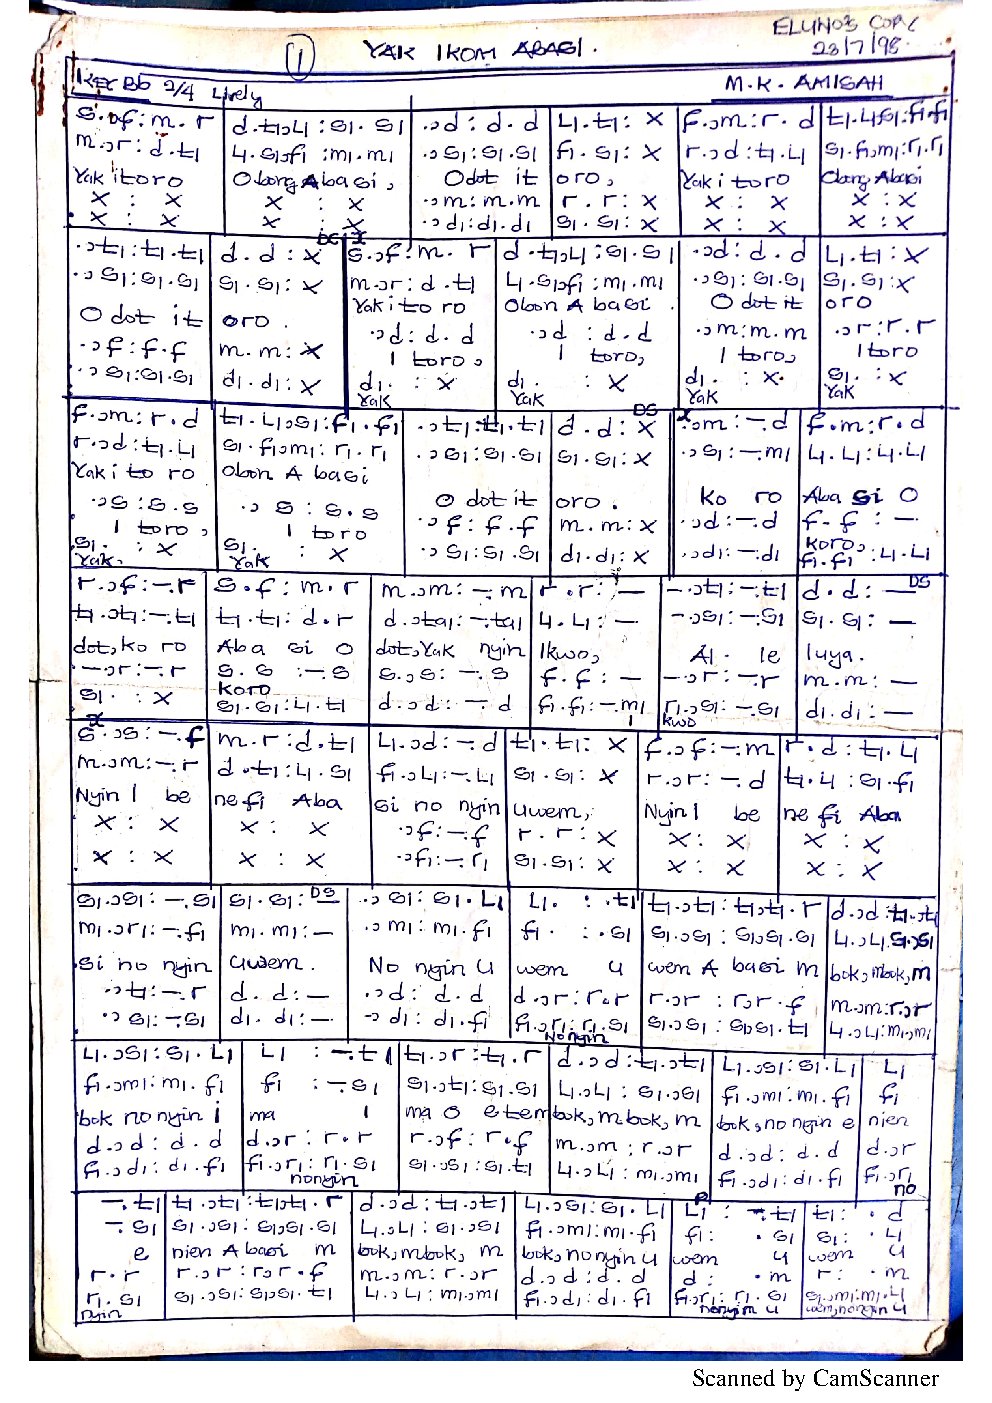 ELUNO'S COPY
23/7/98
① YAK IKOM ABASI.
KEY Bb 2/4 Lively M.K. AMISAH
s.,f:m.r | d.t₁,l₁:s₁.s₁ | .,d:d.d | l₁.t₁:x | f.,m:r.d | t₁.l₁,s₁:f₁.f₁
m.,r:d.t₁ | l₁.s₁,f₁:m₁.m₁ | .,s₁:s₁.s₁ | f₁.s₁:x | r.,d:t₁.l₁ | s₁.f₁,m₁:r₁.r₁
Yak itoro | Obong Abasi, | Odot it | oro, | Yak itoro | Obong Abasi
x : x | x : x | .,m:m.m | r.r:x | x : x | x : x
x : x | x : x | .,d₁:d₁.d₁ | s₁.s₁:x | x : x | x : x
DS x
.,t₁:t₁.t₁ | d.d:x | s.,f:m.r | d.t₁,l₁:s₁.s₁ | .,d:d.d | l₁.t₁:x
.,s₁:s₁.s₁ | s₁.s₁:x | m.,r:d.t₁ | l₁.s₁,f₁:m₁.m₁ | .,s₁:s₁.s₁ | s₁.s₁:x
O dot it | oro. | Yak i to ro | Obon A basi. | O dot it | oro
.,f:f.f | m.m:x | .,d:d.d | .,d:d.d | .,m:m.m | .,r:r.r
I toro, | I toro, | I toro, | I toro
.,s₁:s₁.s₁ | d₁.d₁:x | d₁. :x | d₁. :x | d₁. :x | s₁. :x
Yak | Yak | Yak | Yak
DS x
f.,m:r.d | t₁.l₁,s₁:f₁.f₁ | .,t₁:t₁.t₁ | d.d:x | .,m:–.d | f.m:r.d
r.,d:t₁.l₁ | s₁.f₁,m₁:r₁.r₁ | .,s₁:s₁.s₁ | s₁.s₁:x | .,s₁:–.m₁ | l₁.l₁:l₁.l₁
Yak i to ro | Obon A basi | O dot it | oro. | Ko ro | Aba si O
.,s:s.s | .,s:s.s | .,f:f.f | m.m:x | .,d:–.d | f.f:–
I toro, | I toro, | koro,
s₁. :x | s₁. :x | .,s₁:s₁.s₁ | d₁.d₁:x | .,d₁:–.d₁ | f₁.f₁:l₁.l₁
Yak, | Yak
DS
r.,f:–.r | s.f:m.r | m.,m:–.m | r.r:– | –.,t₁:–.t₁ | d.d:–
t₁.,t₁:–.t₁ | t₁.t₁:d.r | d.,ta₁:–.ta₁ | l₁.l₁:– | –.,s₁:–.s₁ | s₁.s₁:–
dot, ko ro | Aba si O | dot, Yak nyin | Ikwo, | Al - le | luya.
–.,r:–.r | s.s:–.s | s.,s:–.s | f.f:– | –.,r:–.r | m.m:–
koro
s₁. :x | s₁.s₁:l₁.t₁ | d.,d:–.d | f₁.f₁:–.m₁ | r₁.,s₁:–.s₁ | d₁.d₁:–
I | kwo
x
s.,s:–.f | m.r:d.t₁ | l₁.,d:–.d | t₁.t₁:x | f.,f:–.m | r.d:t₁.l₁
m.,m:–.r | d.t₁:l₁.s₁ | f₁.,l₁:–.l₁ | s₁.s₁:x | r.,r:–.d | t₁.l₁:s₁.f₁
Nyin I be | ne fi Aba | si no nyin | uwem, | Nyin I be | ne fi Aba
x : x | x : x | .,f:–.f | r.r:x | x : x | x : x
x : x | x : x | .,f₁:–.r₁ | s₁.s₁:x | x : x | x : x
DS
s₁.,s₁:–.s₁ | s₁.s₁:– | .,s₁:s₁.l₁ | l₁. :.t₁ | t₁.,t₁:t₁,t₁.r | d.,d:t₁.,t₁
m₁.,r₁:–.f₁ | m₁.m₁:– | .,m₁:m₁.f₁ | f₁. :.s₁ | s₁.,s₁:s₁,s₁.s₁ | l₁.,l₁:s₁.,s₁
si no nyin | uwem. | No nyin u | wem u | wem A basi m | bok, mbok, m
.,t₁:–.r | d.d:– | .,d:d.d | d.,r:r.r | r.,r:r,r.f | m.,m:r.,r
.,s₁:–.s₁ | d₁.d₁:– | .,d₁:d₁.f₁ | f₁.,r₁:r₁.s₁ | s₁.,s₁:s₁,s₁.t₁ | l₁.,l₁:m₁.,m₁
No nyin
l₁.,s₁:s₁.l₁ | l₁:–.t₁ | t₁.,r:t₁.r | d.,d:t₁.,t₁ | l₁.,s₁:s₁.l₁ | l₁
f₁.,m₁:m₁.f₁ | f₁:–.s₁ | s₁.,t₁:s₁.s₁ | l₁.,l₁:s₁.,s₁ | f₁.,m₁:m₁.f₁ | f₁
bok no nyin i | ma I | ma O etem | bok, mbok, m | bok, no nyin e | nien
d.,d:d.d | d.,r:r.r | r.,f:r.f | m.,m:r.,r | d.,d:d.d | d.,r
f₁.,d₁:d₁.f₁ | f₁.,r₁:r₁.s₁ | s₁.,s₁:s₁.t₁ | l₁.,l₁:m₁.,m₁ | f₁.,d₁:d₁.f₁ | f₁.,r₁
nonyin | no
–.t₁ | t₁.,t₁:t₁,t₁.r | d.,d:t₁.,t₁ | l₁.,s₁:s₁.l₁ | l₁:–.t₁ | t₁: .d
–.s₁ | s₁.,s₁:s₁,s₁.s₁ | l₁.,l₁:s₁.,s₁ | f₁.,m₁:m₁.f₁ | f₁: .s₁ | s₁: .l₁
e | nien A basi m | bok, mbok, m | bok, no nyin u | wem u | wem u
r.r | r.,r:r,r.f | m.,m:r.,r | d.,d:d.d | d: .m | r: .m
r₁.s₁ | s₁.,s₁:s₁,s₁.t₁ | l₁.,l₁:m₁.,m₁ | f₁.,d₁:d₁.f₁ | f₁.,r₁:r₁.s₁ | s₁.,m₁:m₁.l₁
nyin | nonyin u | wem, nonyin u
Scanned by CamScanner